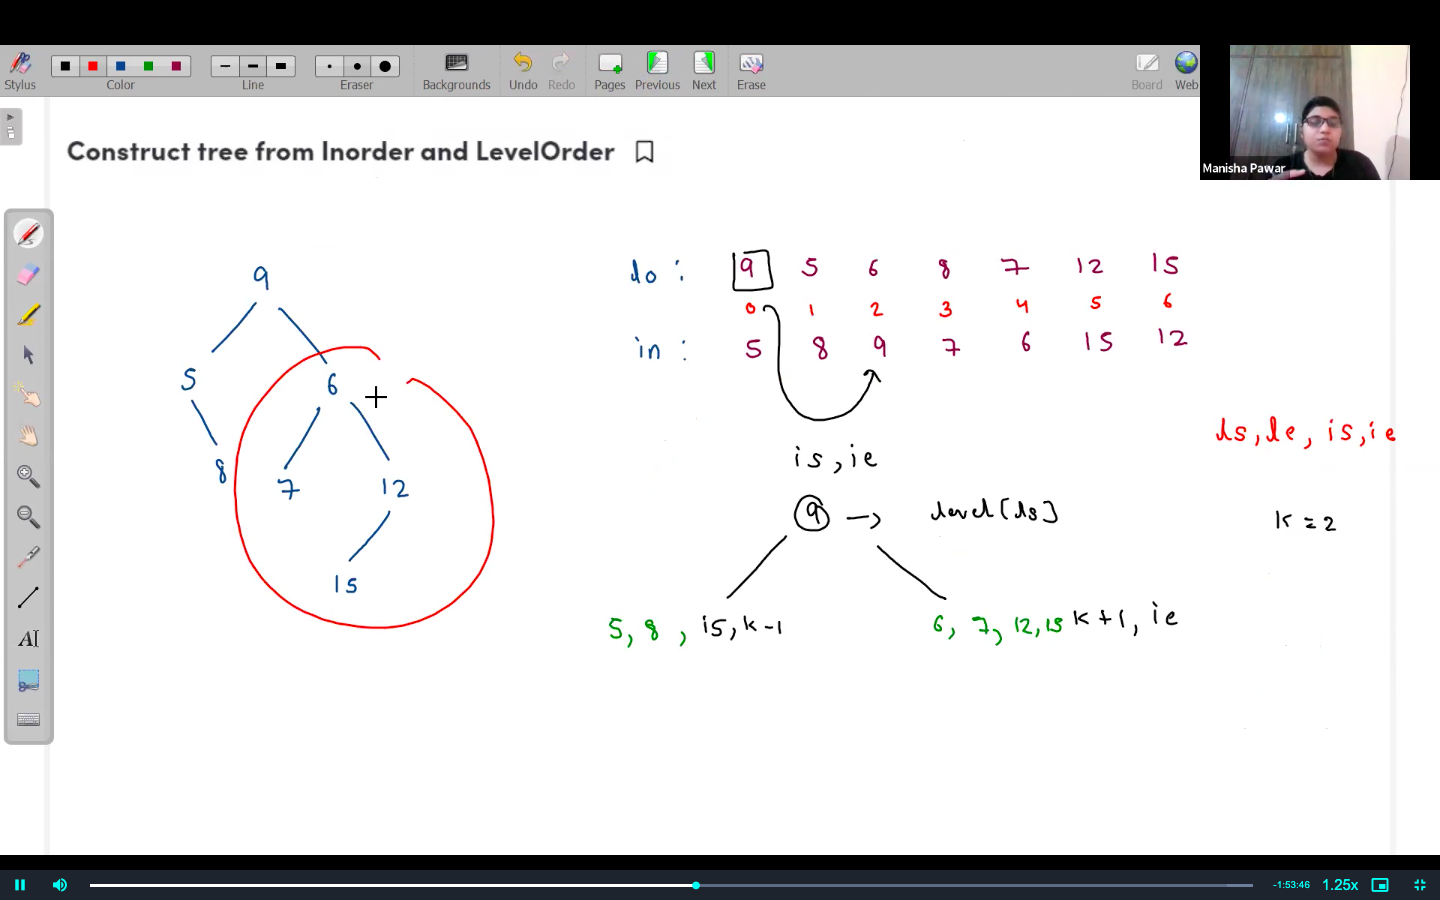 Stylus
Color
Line
Eraser
Backgrounds
Undo
Redo
Pages
Previous
Next
Erase
Board
Web
Manisha Pawar
Construct tree from Inorder and LevelOrder
9
5 6
8 7 12
15
lo : 9 5 6 8 7 12 15
0 1 2 3 4 5 6
in : 5 8 9 7 6 15 12
is, ie
ls, le, is, ie
9 → level[ls]
k = 2
5, 8, is, k-1
6, 7, 12, 15 k+1, ie
AI
-1:53:46
1.25x